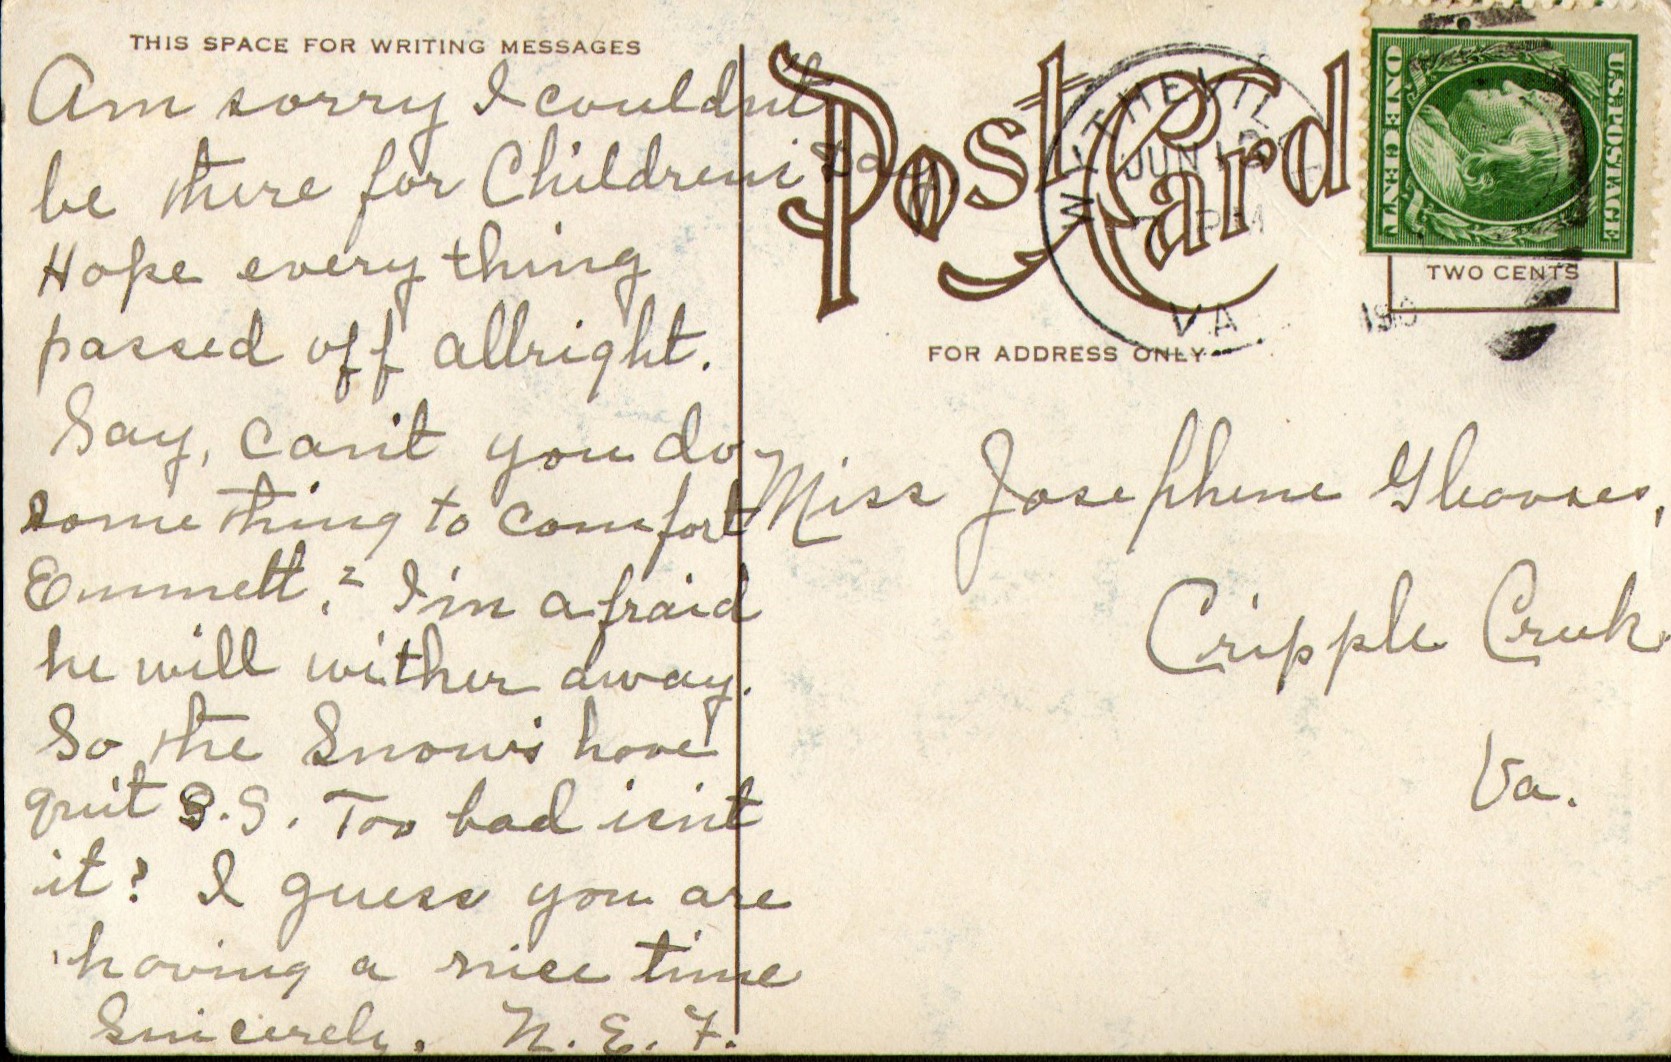 THIS SPACE FOR WRITING MESSAGES
Am sorry I couldn't
be there for Children's Day.
Hope every thing
passed off allright.
Say, can't you do
some thing to comfort
Emmett? I'm afraid
he will wither away.
So the Snows have
quit S.S. Too bad isn't
it? I guess you are
having a nice time
Sincerely. N. E. F.
Post Card
WYTHEVIL
JUN
PM
VA.
190
U.S. POSTAGE
ONE CENT
TWO CENTS
FOR ADDRESS ONLY
Miss Josephine Gleaves,
Cripple Creek
Va.